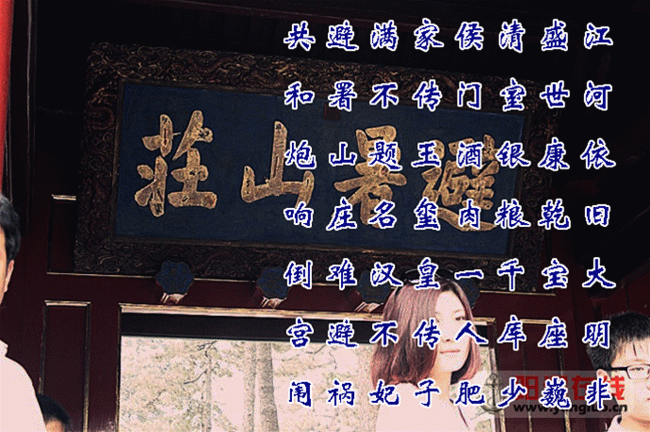 江河依旧大明非
盛世康乾宝座巍
清室银粮千库少
侯门酒肉一人肥
家传玉玺皇传子
满不题名汉不妃
避署山庄难避祸
共和炮响倒宫闱
避暑山莊
在线